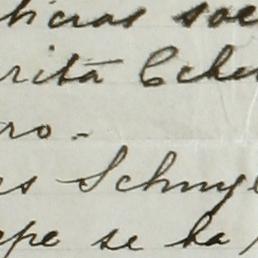 ticias soc
rita Eche
ro.-
s Schuy
epe se ha